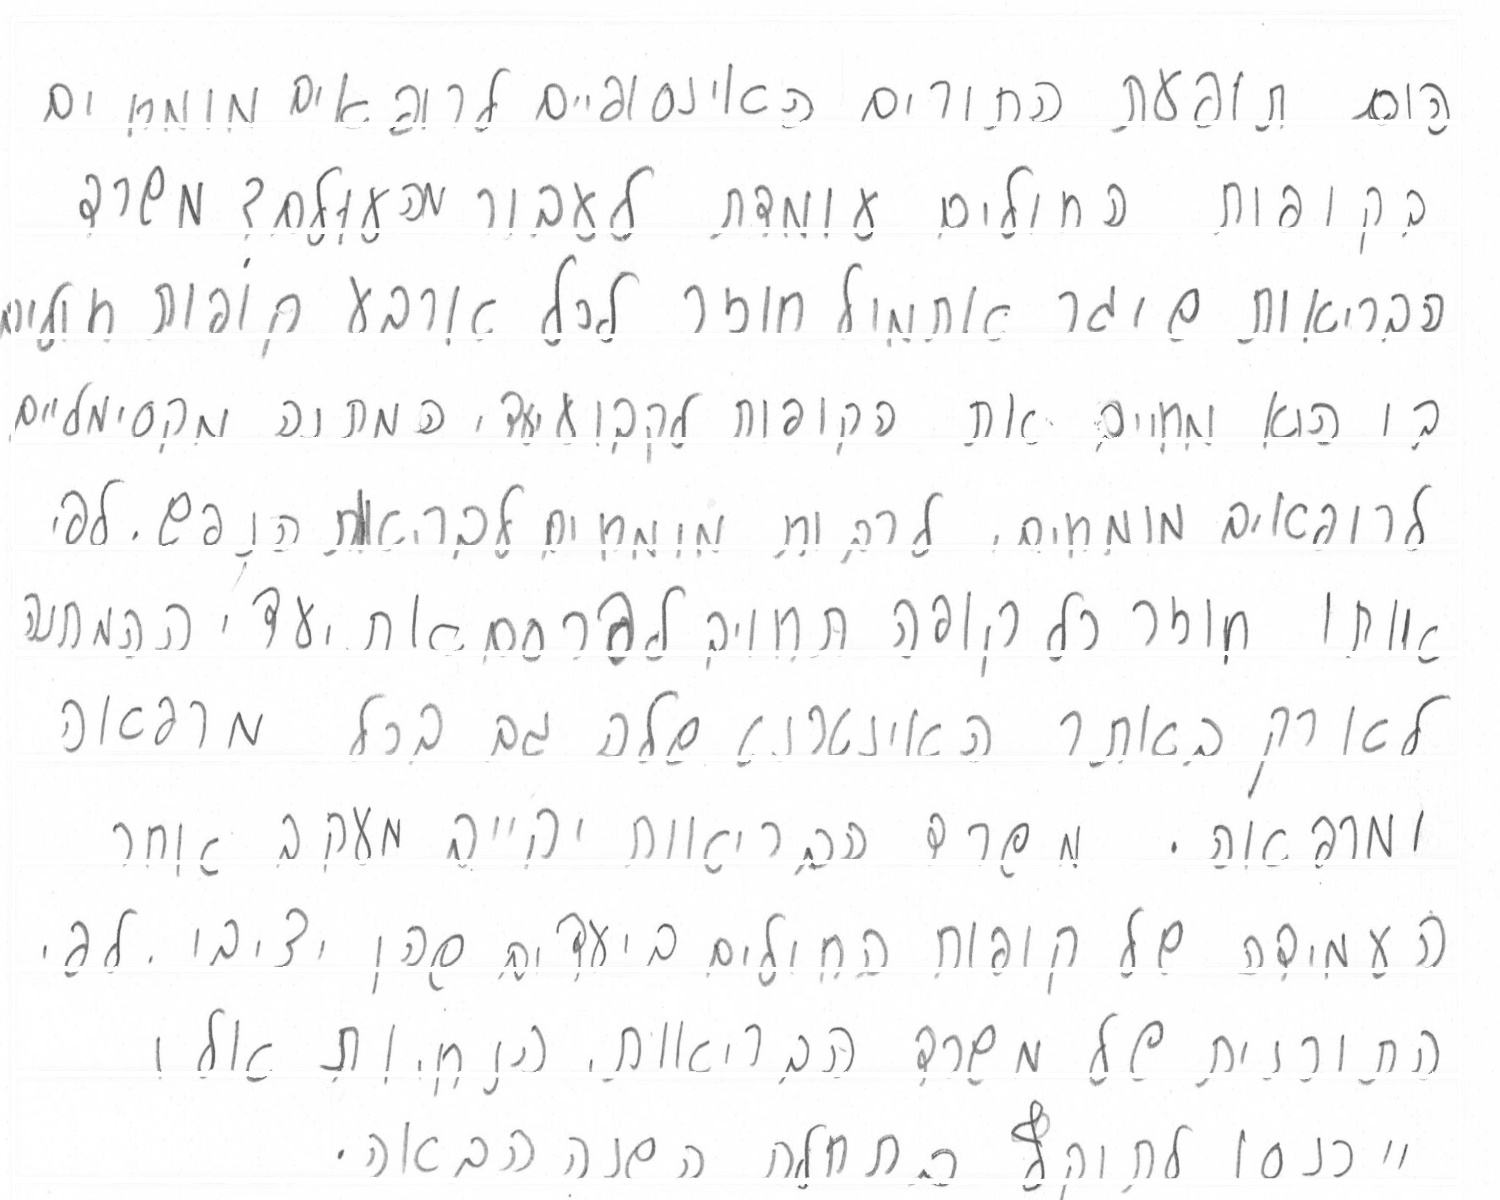 האם תופעת התורים האינסופיים לרופאים מומחים
בקופות החולים עומדת לעבור מהעולם? משרד
הבריאות שיגר אתמול חוזר לכל ארבע קופות חולים
בו הוא מחייב את הקופות לקבוע יעדי המתנה מקסימליים
לרופאים מומחים, לרבות מומחים לבריאות הנפש. לפי
אותו חוזר כל קופה תחויב לפרסם את יעדי ההמתנה
לא רק באתר האינטרנט שלה גם בכל מרפאה
ומרפאה. משרד הבריאות יקיים מעקב אחר
העמידה של קופות החולים ביעדים שהן יציבו. לפי
התורנית של משרד הבריאות, הנחיות אלו
ייכנסו לתוקף בתחלת השנה הבאה.